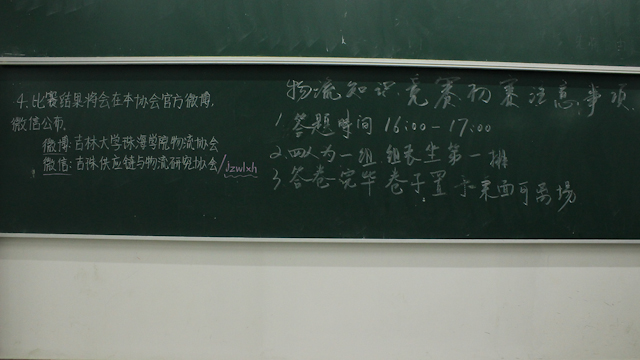 物流知识竞赛初赛注意事项
1.答题时间 16:00-17:00
2.四人为一组 组长坐第一排
3.答卷完毕 卷子置于桌面可离场
4.比赛结果将会在本协会官方微博,
微信公布.
微博:吉林大学珠海学院物流协会
微信:吉珠供应链与物流研究协会/Jzwlxh